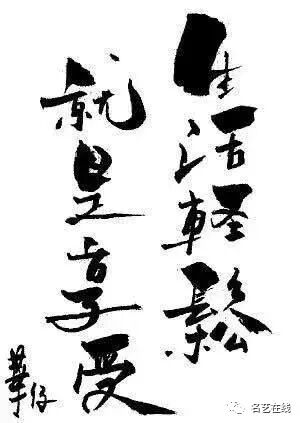 生活輕鬆
就是享受
華仔
名艺在线